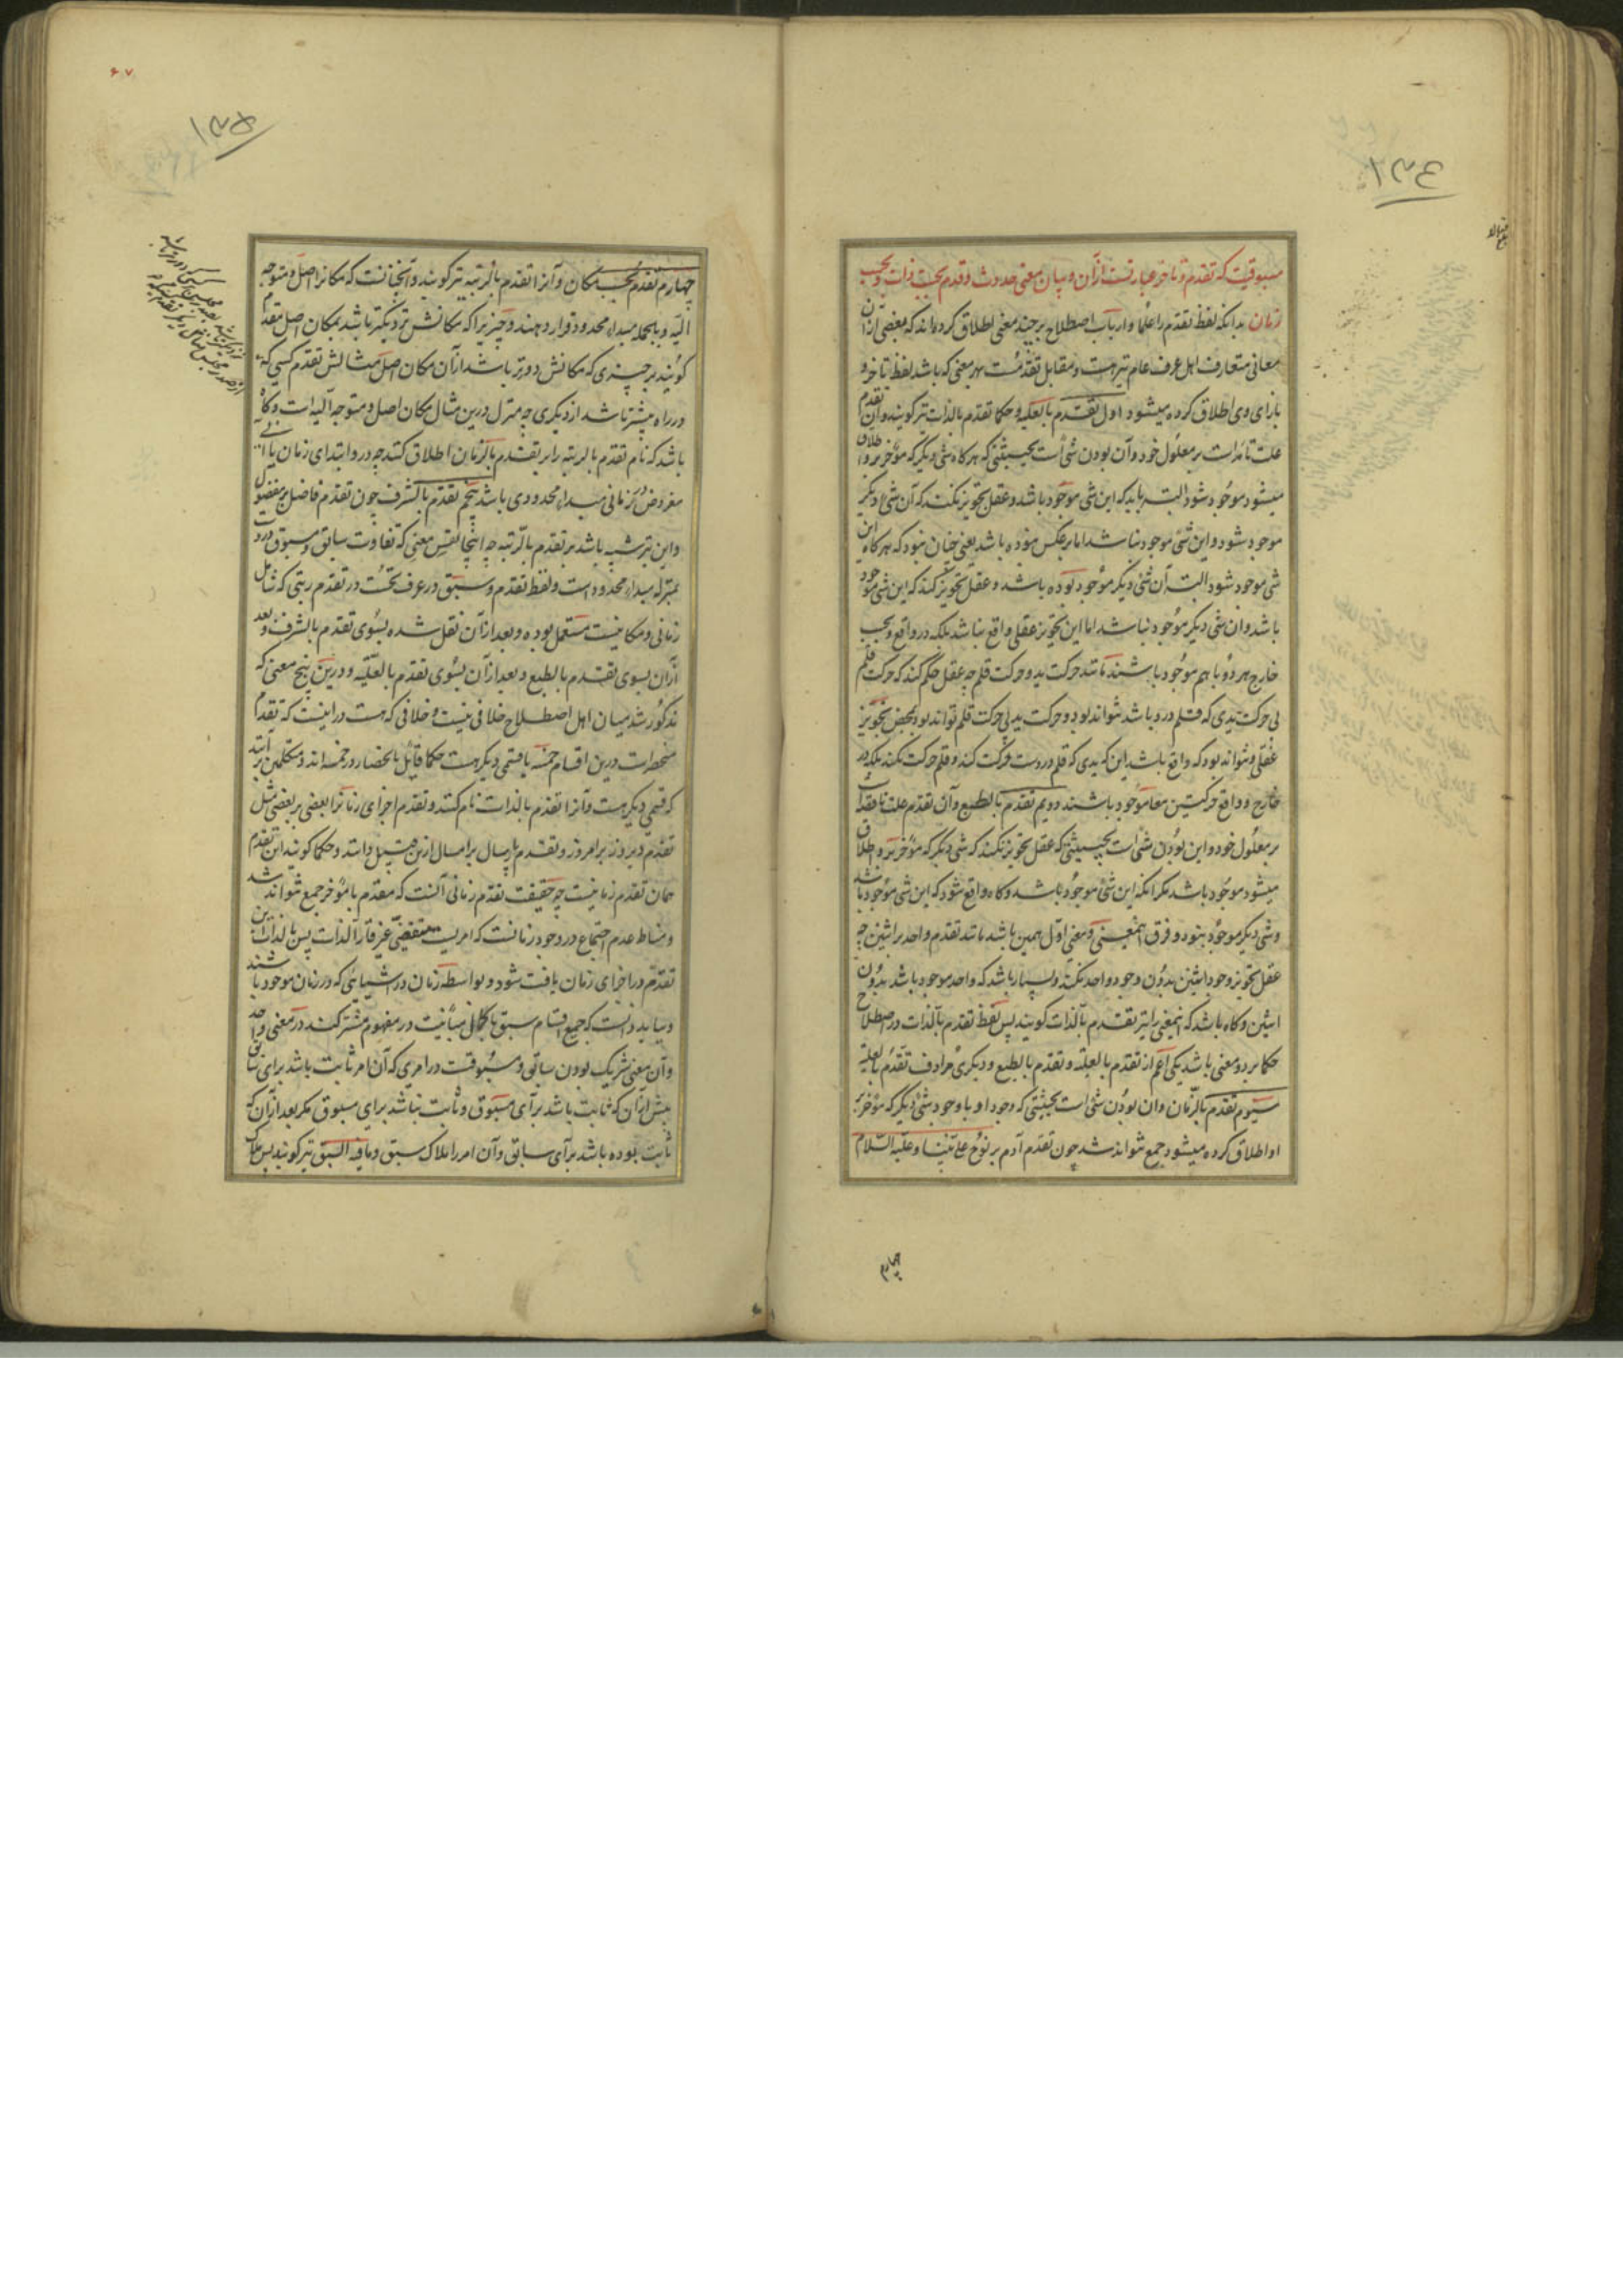 ۱۳۴
مسبوقیت که تقدم و تاخر عبارتست ازآن و بیان معنی حدوث و قدم بحسب ذات و بحسب
زمان بدانکه لفظ تقدم را علما و ارباب اصطلاح بر چند معنی اطلاق کرده‌اند که بعضی ازان
معانی متعارف اهل عرف عام نیز هست و مقابل تقدمست بهر معنی که باشد لفظ تاخر و
بازای وی اطلاق کرده میشود اول تقدم بالعلیه و حکما تقدم بالذات نیز کویند و آن تقدم
علت تامه است بر معلول خود و آن بودن شئ است بحیثیتی که هرکاه شئ دیکر که مؤخر بروا طلاق
میشود موجود شود البته باید که این شئ موجود باشد و عقل تجویز نکند که آن شئ دیکر
موجود شود و این شئ موجود نباشد اما برعکس بوده باشد یعنی چنان بنود که هرکاه این
شئ موجود شود البته آن شئ دیکر موجود بوده باشد و عقل تجویز کند که این شئ موجود
باشد وان شئ دیکر موجود نباشد اما این تجویز عقلی واقع نباشد بلکه در واقع و بحسب
خارج هر دو باهم موجود باشند مانند حرکت ید و حرکت قلم چه عقل حکم کند که حرکت قلم
بی حرکت یدی که قلم درو باشد نتواند بود و حرکت ید بی حرکت قلم تواند بود بمحض تجویز
عقلی و نتواند بود که واقع باشد این که یدی که قلم در دست حرکت کند و قلم حرکت نکند بلکه در
خارج و واقع حرکتین معا موجود باشند دویم تقدم بالطبع و آن تقدم علت ناقصه است
بر معلول خود و این بودن شئ است بحیثیتی که عقل تجویز نکند که شئ دیکر که مؤخر برو اطلاق
میشود موجود باشد مکر انکه این شئ موجود باشد و کاه واقع شود که این شئ موجود باشد
و شئ دیکر موجود بنود و فرق اینمعنی و معنی اول همین باشد مانند تقدم واحد بر اثنین چه
عقل تجویز وجود اثنین بدون وجود واحد نکند و بسیار باشد که واحد موجود باشد بدون
اثنین و کاه باشد که اینمعنی را نیز تقدم بالذات کویند پس لفظ تقدم بالذات در اصطلاح
حکما بر دو معنی باشد یکی اعم از تقدم بالعلیه و تقدم بالطبع و دیکری مرادف تقدم بالعلیه
سیوم تقدم بالزمان وان بودن شئ است بحیثیتی که وجود او با وجود شئ دیکر که مؤخر بر
او اطلاق کرده میشود جمع نتواند شد چون تقدم آدم بر نوح علی نبینا و علیه السلام
چهارم
۶۷
۱۳۵
چهارم تقدم بحسب مکان و آنرا تقدم بالرتبه نیز کویند و آنچنانست که مکانرا اصل و متوجه
الیه و بالجمله مبداء محدود قرار دهند و چیزیرا که مکانش نزدیکتر باشد بمکان اصل مقدم
کویند بر چیزی که مکانش دورتر باشد ازآن مکان اصل مثالش تقدم کسی که
در راه پیشتر باشد از دیکری چه منزل درین مثال مکان اصل و متوجه الیه است و کاه
باشد که نام تقدم بالرتبه را بر تقدم بالزمان اطلاق کنند چه درو ابتدای زمان یا
مفروض در زمانی مبداء محدودی باشد پنجم تقدم بالشرف چون تقدم فاضل بر مفضول
و این نیز شبیه باشد بر تقدم بالرتبه چه اینجا نفس معنی که تفاوت سابق و مسبوق دروست
بمنزله مبداء محدود است و لفظ تقدم و سبق در عرف نخست در تقدم رتبی که شامل
زمانی و مکانیست مستعمل بوده و بعد ازآن نقل شده بسوی تقدم بالشرف و بعد
ازآن بسوی تقدم بالطبع و بعد ازآن بسوی تقدم بالعلیه و درین پنج معنی که
مذکور شد میان اهل اصطلاح خلافی نیست و خلافی که هست دراینست که تقدم
منحصر است درین اقسام خمسه یا قسمی دیکر هست حکما قایل بانحصار در خمسه‌اند و متکلمین بر آنند
که قسمی دیکر هست و آنرا تقدم بالذات نام کنند و تقدم اجزای زمانرا بعضی بر بعضی مثل
تقدم دیروز بر امروز و تقدم پارسال بر امسال ازین قبیل دانند و حکما کویند این تقدم
همان تقدم زمانیست چه حقیقت تقدم زمانی آنست که مقدم با مؤخر جمع نتواند شد
و مناط عدم اجتماع در وجود زمانست که امریست متقضی غیر قار الذات پس بالذات این
تقدم در اجزای زمان یافت شود و بواسطه زمان در اشیائی که در زمان موجود باشند
و بباید دانست که جمیع اقسام سبق با کمال مباینت در مفهوم مشترکند در معنی واحد
و آن معنی شریک بودن سابق و مسبوقست در امری که آن امر ثابت باشد برای سابق
پیش ازآن که ثابت باشد برای مسبوق و ثابت نباشد برای مسبوق مکر بعد ازآن که
ثابت بوده باشد برای سابق و آن امر را ملاک سبق و مافیه السبق نیز کویند پس ملاک